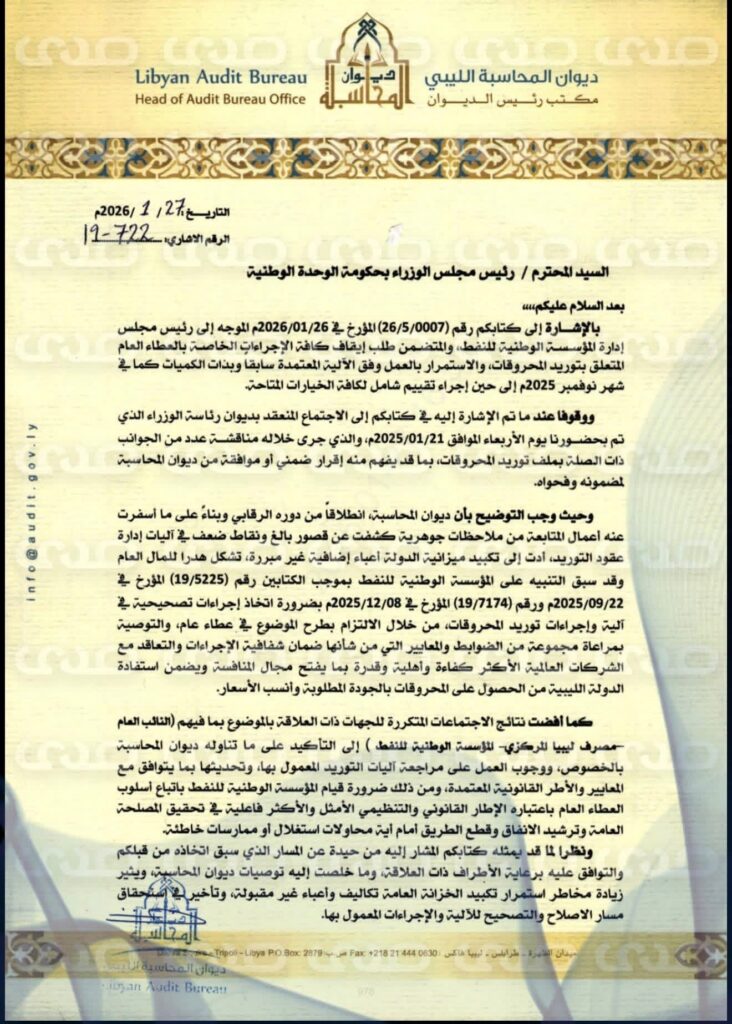 Libyan Audit Bureau
Head of Audit Bureau Office
ديوان المحاسبة
ديوان المحاسبة الليبي
مكتب رئيس الديوان
التاريخ: 27 / 1 / 2026م
الرقم الاشاري: 19-722
السيد المحترم / رئيس مجلس الوزراء بحكومة الوحدة الوطنية
بعد السلام عليكم،،،،
بالإشارة إلى كتابكم رقم (26/5/0007) المؤرخ في 2026/01/26م الموجه إلى رئيس مجلس
إدارة المؤسسة الوطنية للنفط، والمتضمن طلب إيقاف كافة الإجراءات الخاصة بالعطاء العام
المتعلق بتوريد المحروقات، والاستمرار بالعمل وفق الآلية المعتمدة سابقا وبذات الكميات كما في
شهر نوفمبر 2025م إلى حين إجراء تقييم شامل لكافة الخيارات المتاحة.
ووقوفا عند ما تم الإشارة إليه في كتابكم إلى الاجتماع المنعقد بديوان رئاسة الوزراء الذي
تم بحضورنا يوم الأربعاء الموافق 2025/01/21م، والذي جرى خلاله مناقشة عدد من الجوانب
ذات الصلة بملف توريد المحروقات، بما قد يفهم منه إقرار ضمني أو موافقة من ديوان المحاسبة
لمضمونه وفحواه.
وحيث وجب التوضيح بأن ديوان المحاسبة، انطلاقاً من دوره الرقابي وبناءً على ما أسفرت
عنه أعمال المتابعة من ملاحظات جوهرية كشفت عن قصور بالغ ونقاط ضعف في آليات إدارة
عقود التوريد، أدت إلى تكبيد ميزانية الدولة أعباء إضافية غير مبررة، تشكل هدرا للمال العام
وقد سبق التنبيه على المؤسسة الوطنية للنفط بموجب الكتابين رقم (19/5225) المؤرخ في
2025/09/22م ورقم (19/7174) المؤرخ في 2025/12/08م بضرورة اتخاذ إجراءات تصحيحية في
آلية وإجراءات توريد المحروقات، من خلال الالتزام بطرح الموضوع في عطاء عام، والتوصية
بمراعاة مجموعة من الضوابط والمعايير التي من شأنها ضمان شفافية الإجراءات والتعاقد مع
الشركات العالمية الأكثر كفاءة وأهلية وقدرة بما يفتح مجال المنافسة ويضمن استفادة
الدولة الليبية من الحصول على المحروقات بالجودة المطلوبة وأنسب الأسعار.
كما أفضت نتائج الاجتماعات المتكررة للجهات ذات العلاقة بالموضوع بما فيهم (النائب العام
-مصرف ليبيا المركزي- المؤسسة الوطنية للنفط ) إلى التأكيد على ما تناوله ديوان المحاسبة
بالخصوص، ووجوب العمل على مراجعة آليات التوريد المعمول بها، وتحديثها بما يتوافق مع
المعايير والأطر القانونية المعتمدة، ومن ذلك ضرورة قيام المؤسسة الوطنية للنفط باتباع أسلوب
العطاء العام باعتباره الإطار القانوني والتنظيمي الأمثل والأكثر فاعلية في تحقيق المصلحة
العامة وترشيد الانفاق وقطع الطريق أمام أية محاولات استغلال أو ممارسات خاطئة.
ونظرا لما قد يمثله كتابكم المشار إليه من حيدة عن المسار الذي سبق اتخاذه من قبلكم
والتوافق عليه برعاية الأطراف ذات العلاقة، وما خلصت إليه توصيات ديوان المحاسبة، ويثير
زيادة مخاطر استمرار تكبيد الخزانة العامة تكاليف وأعباء غير مقبولة، وتأخير في استحقاق
مسار الاصلاح والتصحيح للآلية والإجراءات المعمول بها.
info@audit.gov.ly
ميدان القاهرة - طرابلس - ليبيا فاكس : Fax: +218 21 444 0630 ص.ب: P.O.Box: 2879 Tripoli - Libya
المحاسبة
ديوان المحاسبة الليبي
Libyan Audit Bureau
صدى